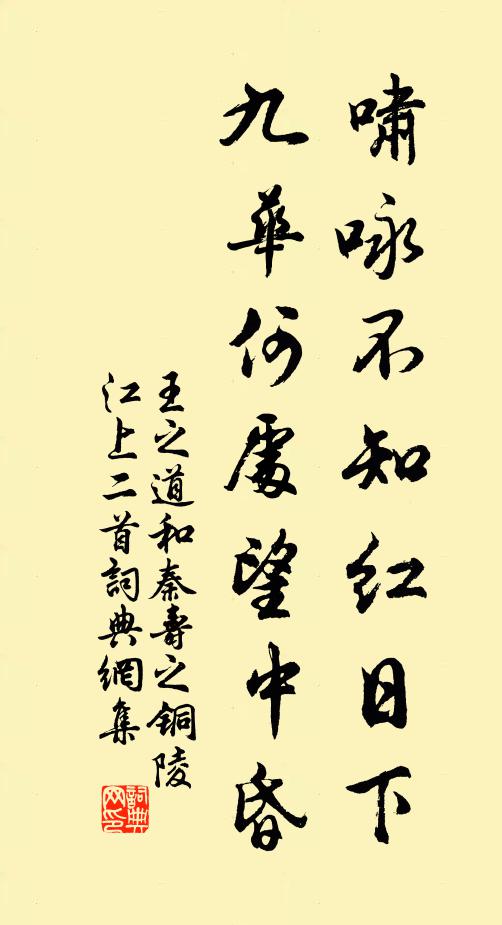 嘯咏不知红日下
九華何處望中昏
王之道和秦壽之铜陵
江上二首詞典網集
詞典
网印